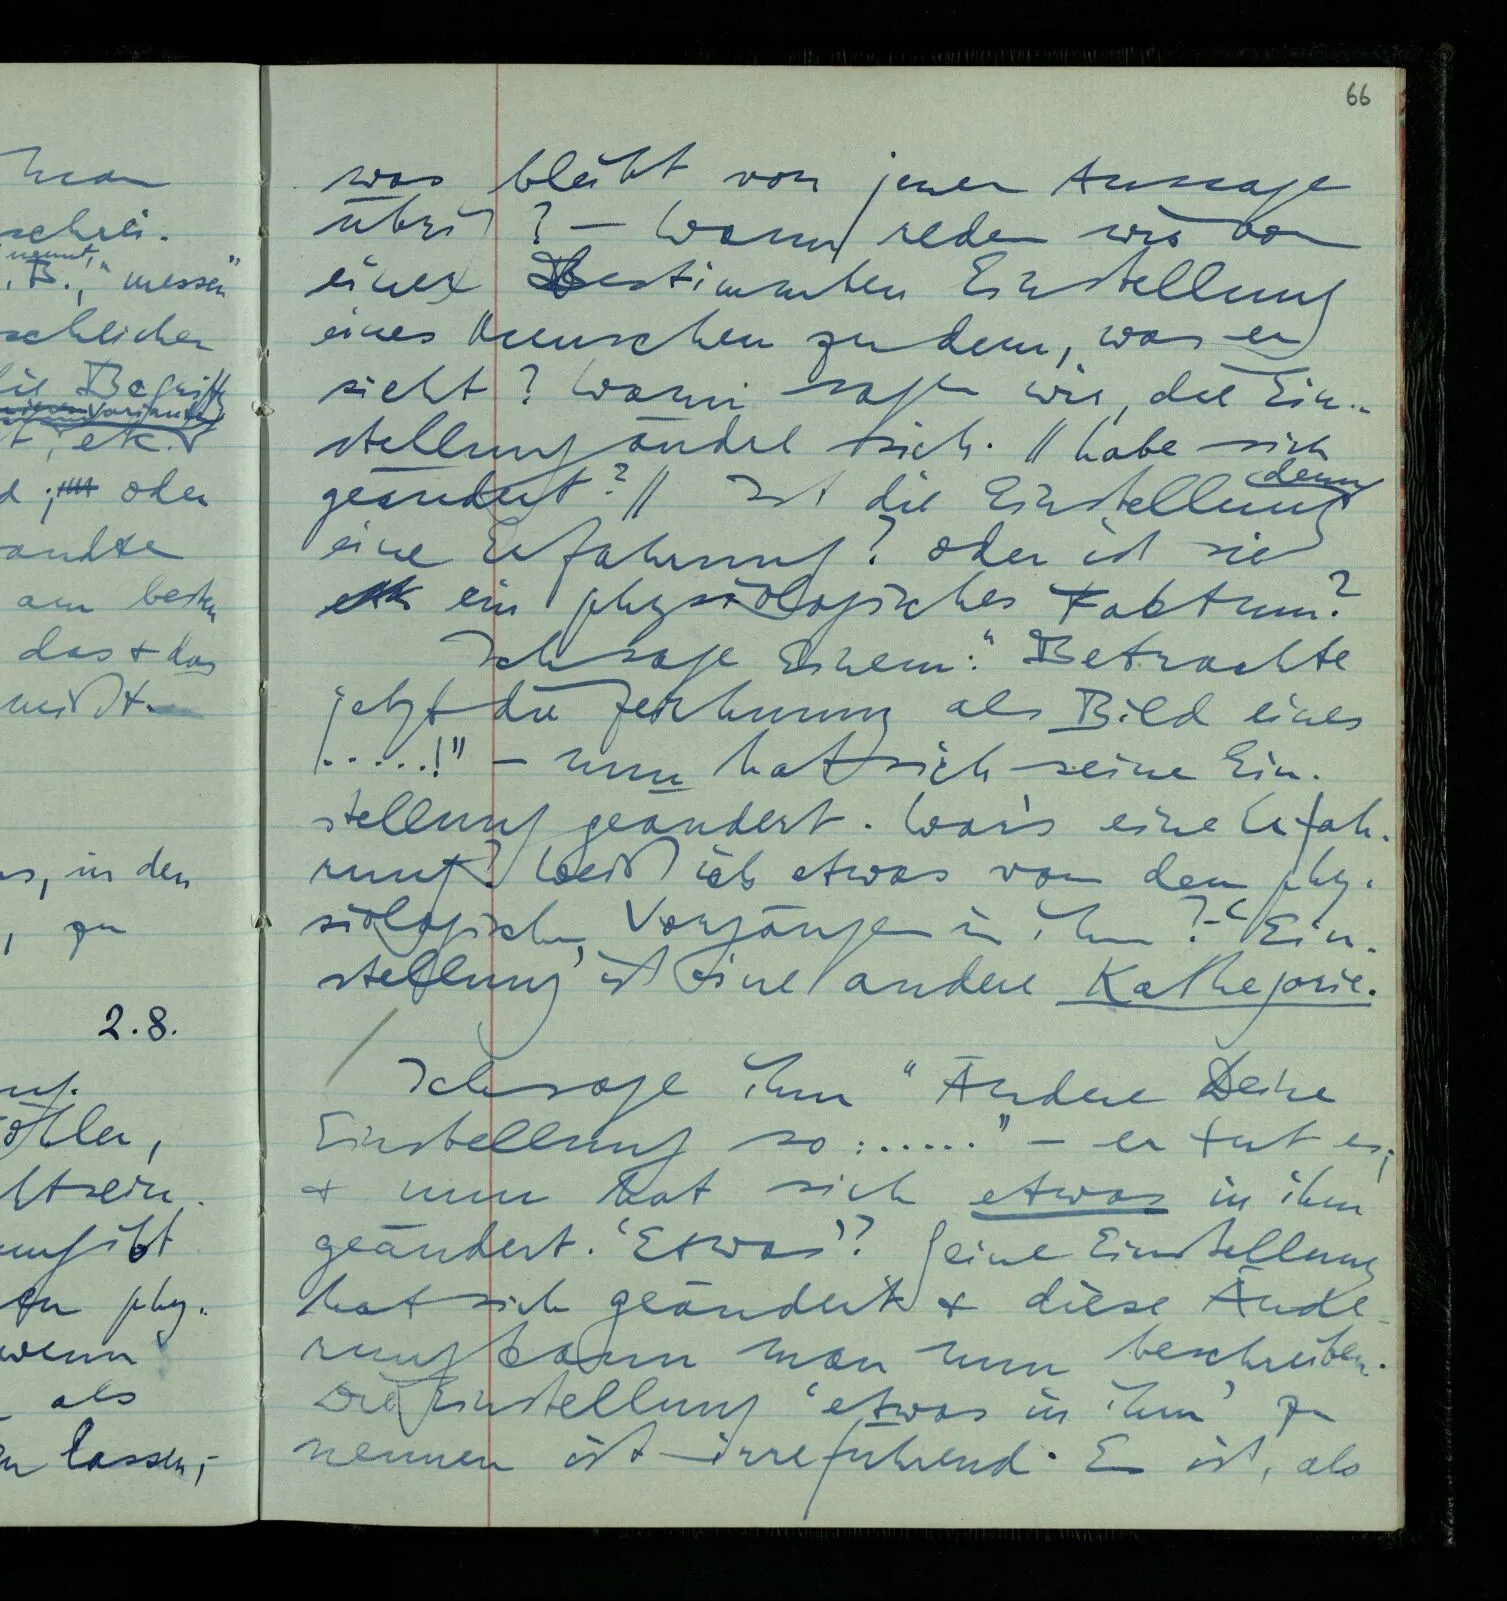 66
man
schrei-
nennt,
. B., "messen"
schlichen
die Begriffe
t, etc.
d; oder
andte
am besten
das + das
mißt.
s, in den
, zu
2.8.
öhler,
ltsein.
umgibt
phy-
wenn
als
n lassen,-
was bleibt von jener Aussage
übrig? – Wann reden wir von
einer bestimmten Einstellung
eines Menschen zu dem, was er
sieht? Wann sagen wir, die Ein-
stellung ändre sich. // habe sich
geändert? // Ist die Einstellung denn
eine Erfahrung? Oder ist sie
ein physiologisches Faktum?
Ich sage Einem: "Betrachte
jetzt die Zeichnung als Bild eines
.....!" – nun hat sich seine Ein-
stellung geändert. War's eine Erfah-
rung? Weiß ich etwas von den phy-
siologischen Vorgängen in ihm? – 'Ein-
stellung' ist eine andere Kathegorie.
Ich sage ihm "Ändere Deine
Einstellung so: ....." – er tut es;
+ nun hat sich etwas in ihm
geändert. 'Etwas'? Seine Einstellung
hat sich geändert + diese Ände-
rung kann man nun beschreiben.
Die Einstellung 'etwas in ihm' zu
nennen ist irreführend. Es ist, als